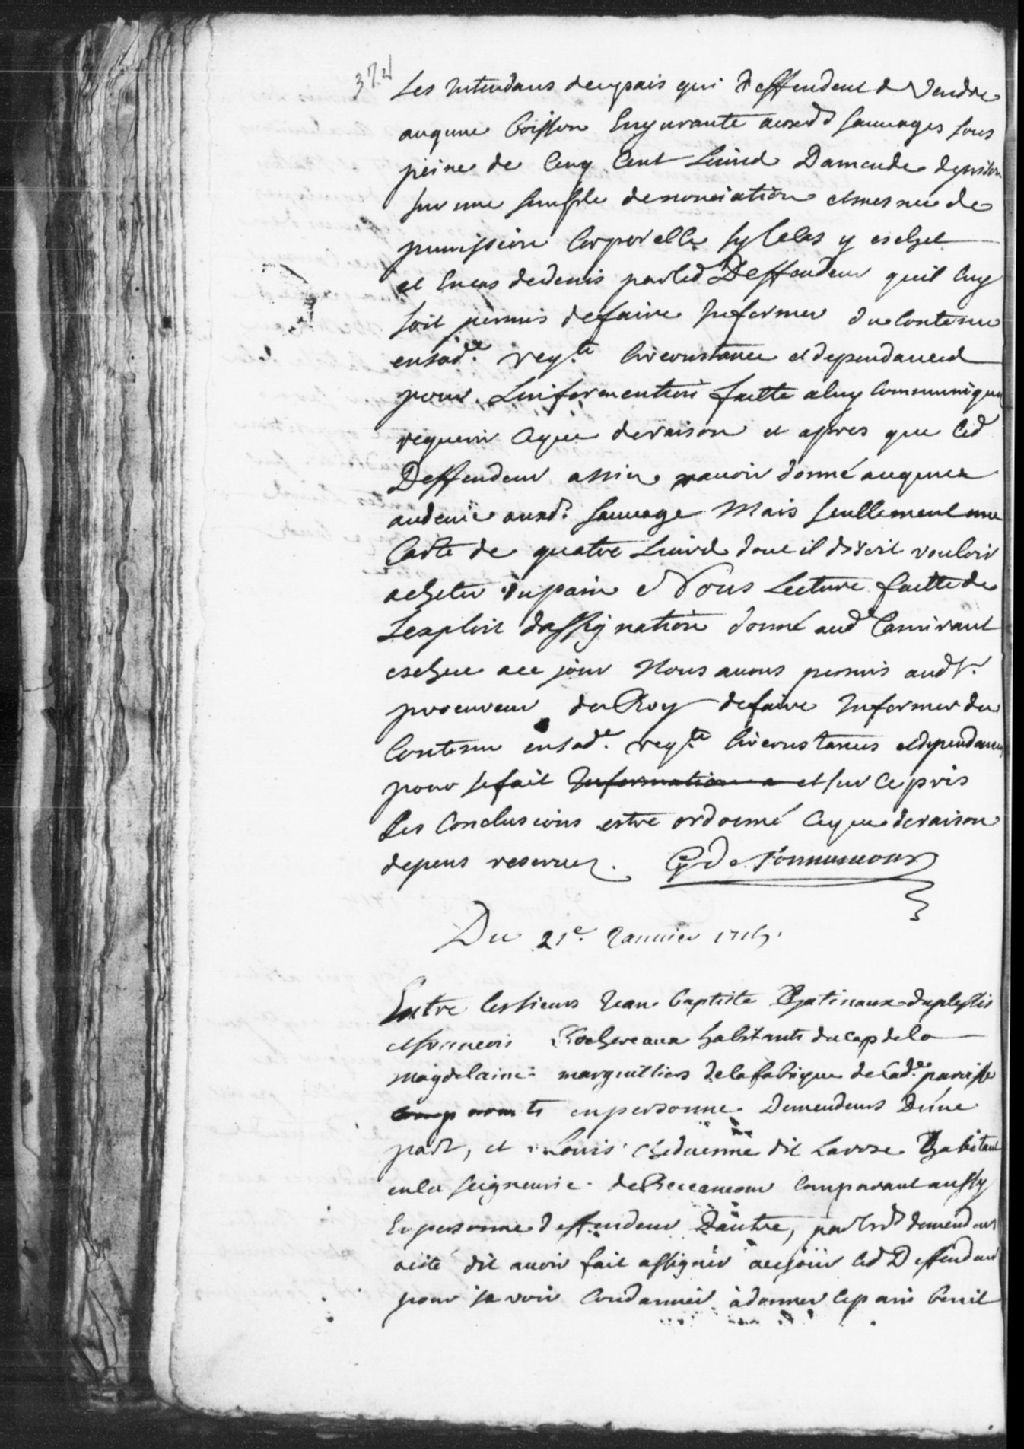 374
Les Intendans de ce pais qui deffendent de Vendre
auqune boisson Enyvrante auxd. sauvages sous
peine de Cinq Cent Livres Damende
sur une simple denonciation et mesme de
punission Corporelle sy le Cas y eschet
et En cas de denis par led Deffendeur quil luy
soit permis de faire Informer du Contenu
en sad.e req.te Circonstance et dependances
pour Linformention faitte a luy Communiquée
requerir ce que de raison et apres que led
Deffendeur a avoir donné auqune
audevie auxd. sauvage Mais seullement une
Carte de quatre Livres dont il disoit vouloir
acheter du pain Nous Lecture faitte de
Lexploit dassignation donné aud
escheu a ce jour Nous avons permis aud Sr.
procureur du Roy de faire Informer du
Contenu en sad.e req.te Circonstances et dependances
pour le fait Information et sur ce pris
Les Conclusions estre ordonné Ce que de raison
depens reservez. G de Tonnancour
Du 21e. Janvier
Entre les sieurs Jean Baptiste Gatineaux duplessis
et francois Rochereaux habitants du Cap de la
magdelaine marguilliers de la fabrique de lad.e paroisse
comparants en personne Demendeurs Dune
part, et Louis dit Larose habitant
en la seigneurie de Beccancour Comparant aussy
En personne Deffendeur Dautre, par lesd demendeurs
a este dit avoir fait assigner a ce jour led Deffendeur
pour se voir Condamner à donner le pain benit